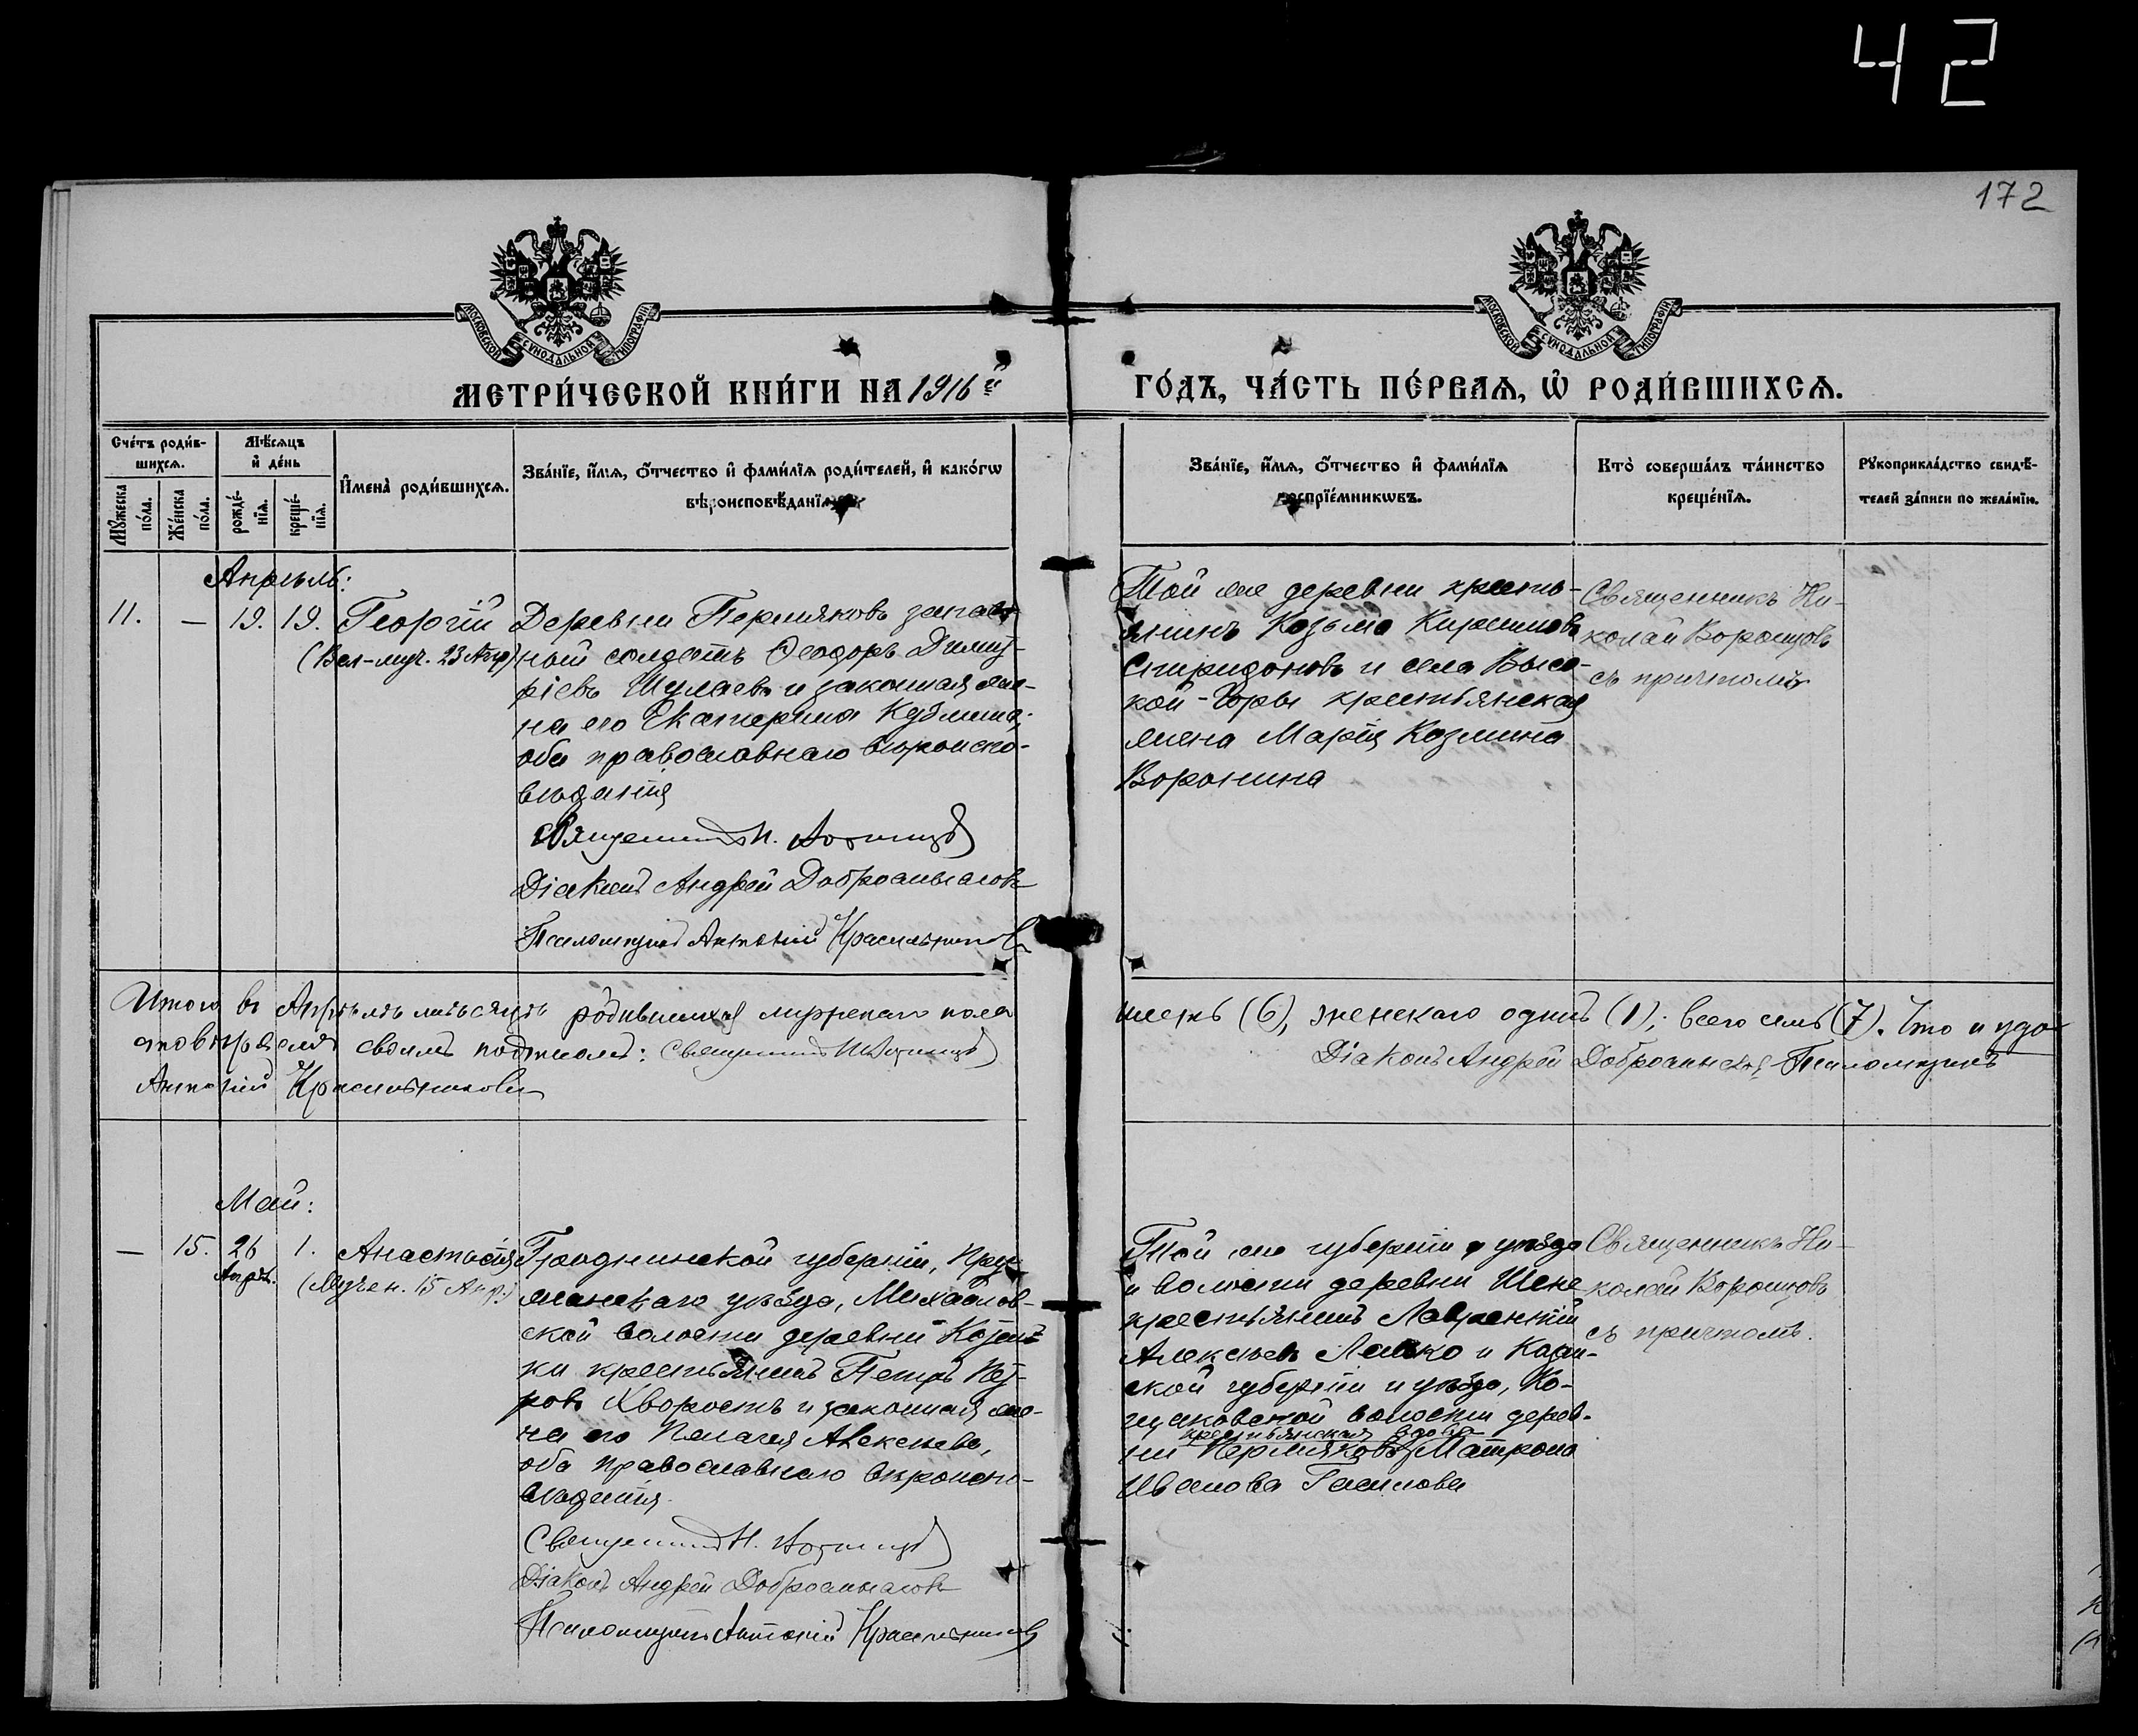 42
172
МОСКОВСКОЙ СѴНОДАЛЬНОЙ ТИПОГРАФІИ
МОСКОВСКОЙ СѴНОДАЛЬНОЙ ТИПОГРАФІИ
МЕТРИ́ЧЕСКОЙ КНИ́ГИ НА 1916й
ГО́ДЪ, ЧА́СТЬ ПЕ́РВАѦ, Ѡ҆ РОДИ́ВШИХСѦ.
Сче́тъ роди́в-
шихсѧ.
Мѣ́сѧцъ
и҆ де́нь
Мꙋ́жеска
по́ла.
Же́нска
по́ла.
рожде́-
нїѧ.
креще́-
нїѧ.
И҆мена̀ роди́вшихсѧ.
Зва́нїе, и҆́мѧ, о҆́тчество и҆ фами́лїѧ роди́телей, и҆ како́гѡ
вѣроисповѣ́данїѧ
Зва́нїе, и҆́мѧ, о҆́тчество и҆ фами́лїѧ
воспрїе́мникѡвъ.
Кто̀ соверша́лъ та́инство
креще́нїѧ.
Рꙋкоприкла́дство свидѣ́-
телей за́писи по жела́нїю.
Апрѣль:
11. — 19. 19. Георгій
(Вел-муч. 23 Апр)
Деревни Пермяковъ запас
ной солдатъ Ѳеодоръ Димит-
ріевъ Шулаевъ и законная же-
на его Екатерина Кузмина;
оба православнаго вѣроиспо-
вѣданія
Священникъ Н. Воронцовъ
Діаконъ Андрей Добросмысловъ
Псаломщикъ Антоній Красильниковъ
Той же деревни кресть-
янинъ Козьма Кирилловъ
Спиридоновъ и села Высо-
кой-Горы крестьянская
жена Марія Козмина
Воронина
Священникъ Ни-
колай Воронцовъ
съ причтомъ
Итого въ Апрѣлѣ мѣсяцѣ родившихся мужескаго пола
шесть (6), женскаго одинъ (1); всего семь (7). Что и удо-
стовѣряемъ своимъ подписомъ: Священникъ Н Воронцовъ
Діаконъ Андрей Добросмысловъ Псаломщикъ
Антоній Красильниковъ
Май:
— 15. 26 1. Анастасія
Апрѣл.
(Мучен. 15 Апр.)
Гродненской губерніи, Пру-
жанскаго уѣзда, Михайлов-
ской волости деревни
ки крестьянинъ Петръ Пет-
ровъ Хворостъ и законная же-
на его Пелагея Алексѣева,
оба православнаго вѣроиспо-
вѣданія.
Священникъ Н. Воронцовъ
Діаконъ Андрей Добросмысловъ
Псаломщикъ Антоній Красильниковъ
Той же губерніи уѣзда
и волости деревни
крестьянинъ Лаврентій
Алексѣевъ и Казан-
ской губерніи и уѣзда, Ко-
щаковской волости дерев-
крестьянская вдова
ни Пермяковъ Матрона
Иванова
Священникъ Ни-
колай Воронцовъ
съ причтомъ.